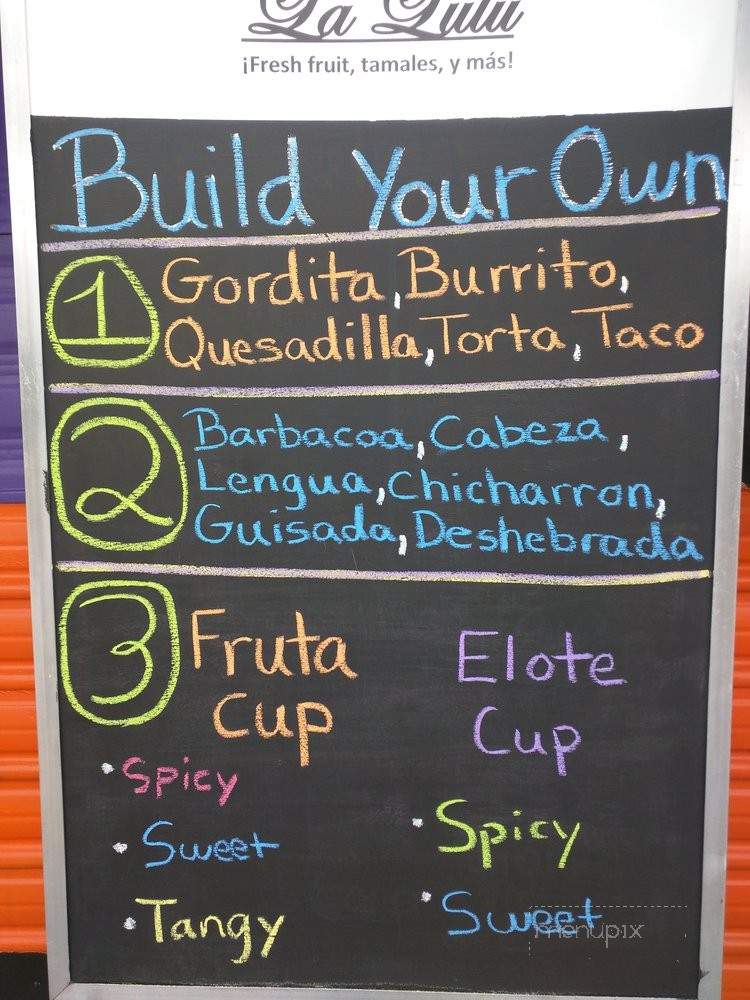 La Lulu
¡Fresh fruit, tamales, y más!
Build Your Own
1 Gordita, Burrito,
Quesadilla, Torta, Taco
2 Barbacoa, Cabeza,
Lengua, Chicharron,
Guisada, Deshebrada
3 Fruta Cup
• Spicy
• Sweet
• Tangy
Elote Cup
• Spicy
• Sweet
menupix